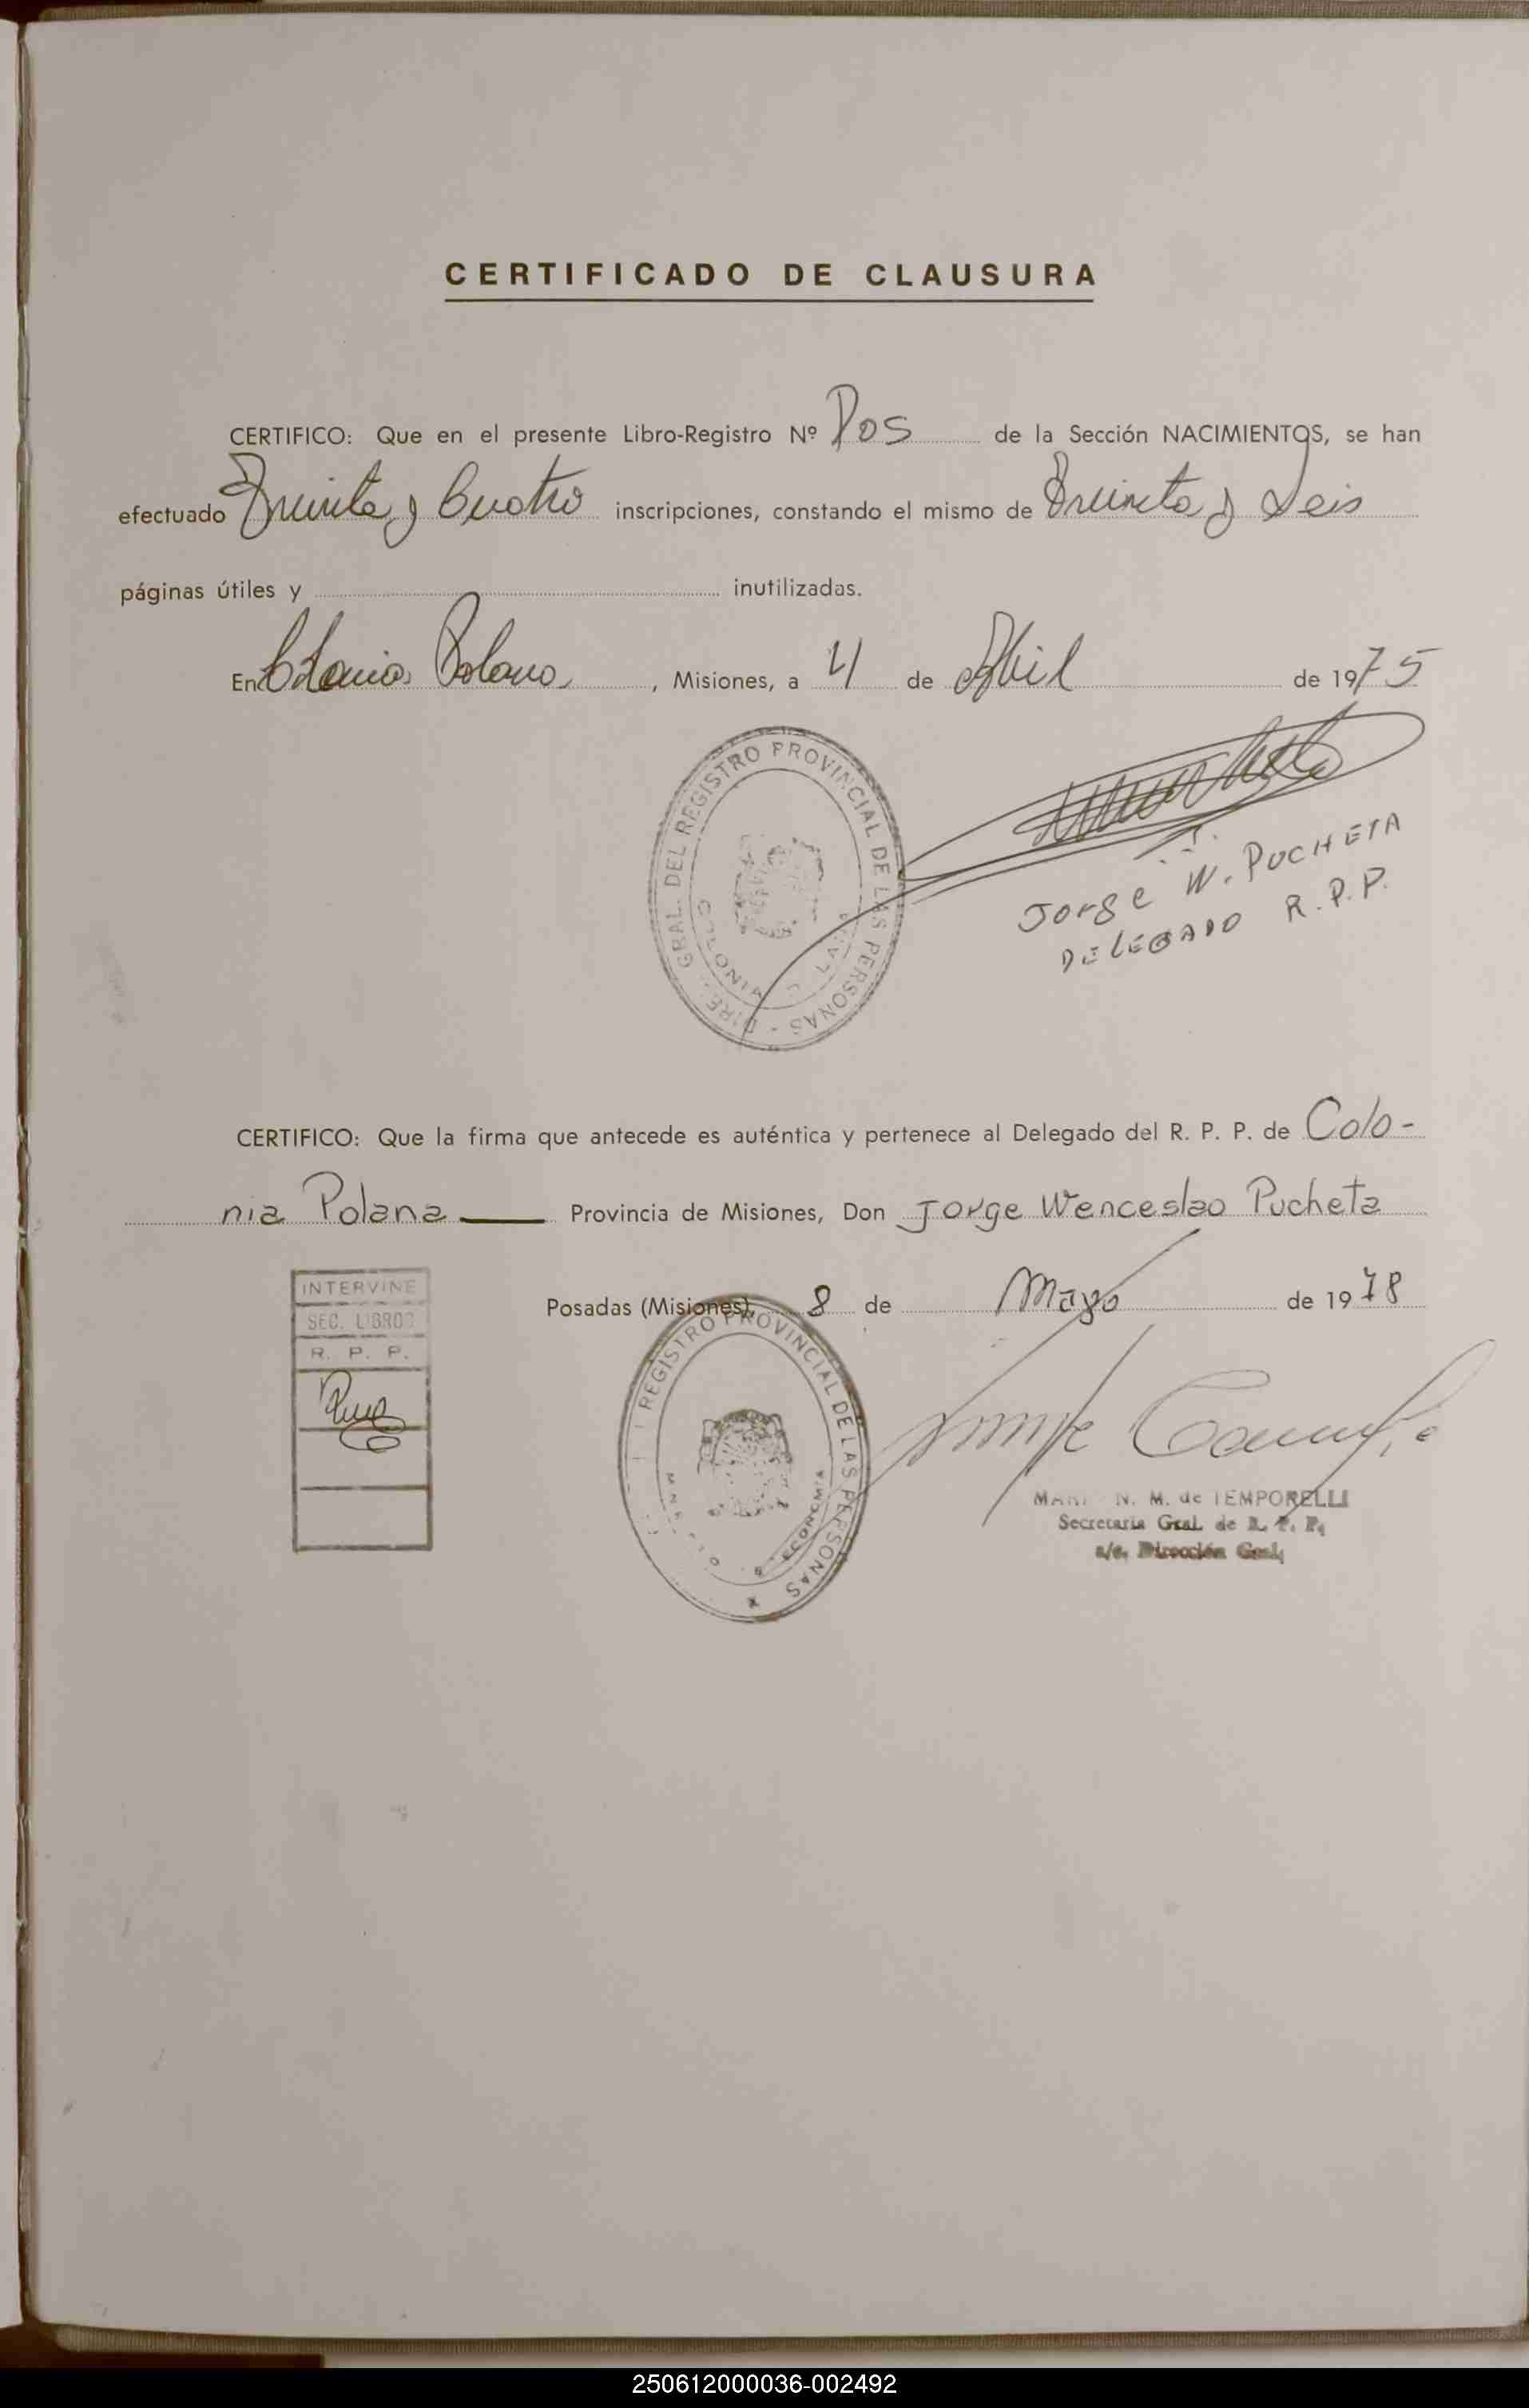 CERTIFICADO DE CLAUSURA
CERTIFICO: Que en el presente Libro-Registro Nº Dos de la Sección NACIMIENTOS, se han
efectuado Treinta y Cuatro inscripciones, constando el mismo de Treinta y Seis
páginas útiles y inutilizadas.
En Colonia Polana, Misiones, a 4 de Abril de 1975
GRAL. DEL REGISTRO PROVINCIAL DE LAS PERSONAS
Jorge W. PUCHETA
DELEGADO R.P.P.
CERTIFICO: Que la firma que antecede es auténtica y pertenece al Delegado del R. P. P. de Colo-
nia Polana Provincia de Misiones, Don Jorge Wenceslao Pucheta
INTERVINE
SEC. LIBROS
R. P. P.
Posadas (Misiones), 8 de Mayo de 1978
REGISTRO PROVINCIAL DE LAS PERSONAS
ECONOMIA
N. M. de TEMPORELLI
Secretaria Gral. de R. P. P.
a/c. Dirección Gral.
250612000036-002492